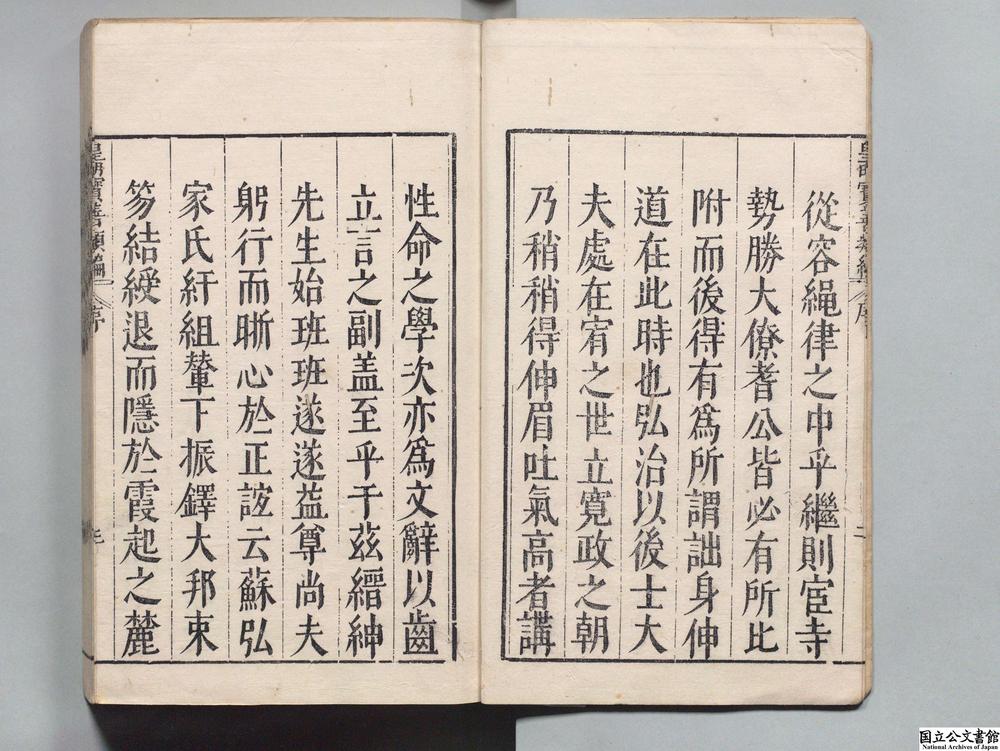 從容繩律之中乎繼則宦寺
勢勝大僚耆公皆必有所比
附而後得有為所謂詘身伸
道在此時也弘治以後士大
夫處在宥之世立寬政之朝
乃稍稍得伸眉吐氣高者講
性命之學次亦為文辭以齒
立言之副盖至乎于茲縉紳
先生始班班遂遂益尊尚夫
躬行而晰心於正諠云蘇弘
家氏紆組輦下振鐸大邦束
笏結綬退而隱於霞起之麓
皇明寶善類編
序
二
皇明寶善類編
序
国立公文書館
National Archives of Japan